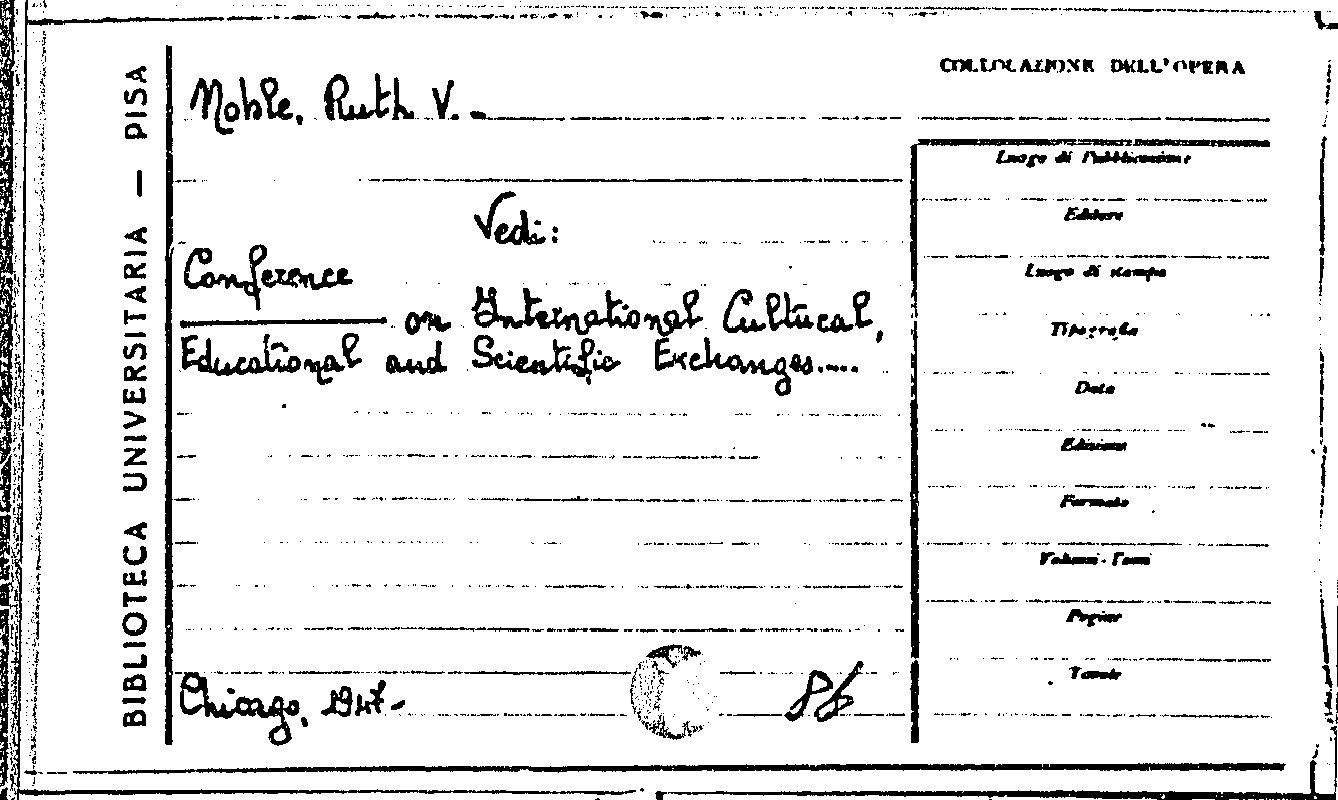 BIBLIOTECA UNIVERSITARIA — PISA
Noble, Ruth V. -
Vedi:
Conference
on International Cultural,
Educational and Scientific Exchanges....
Chicago, 1947-
COLLOCAZIONE DELL'OPERA
Luogo di Pubblicazione
Editore
Luogo di stampa
Tipografia
Data
Edizione
Formato
Volumi - Tomi
Pagine
Tavole